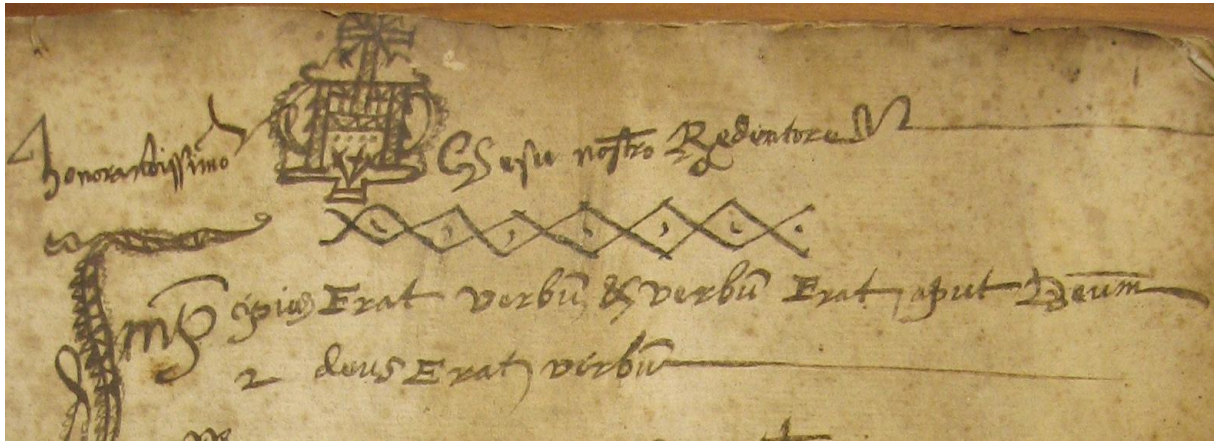 honorandissimo Ghesu nostro Redentore
In p̄cipio Erat verbū & verbū Erat aput Deum
2 deus Erat verbū